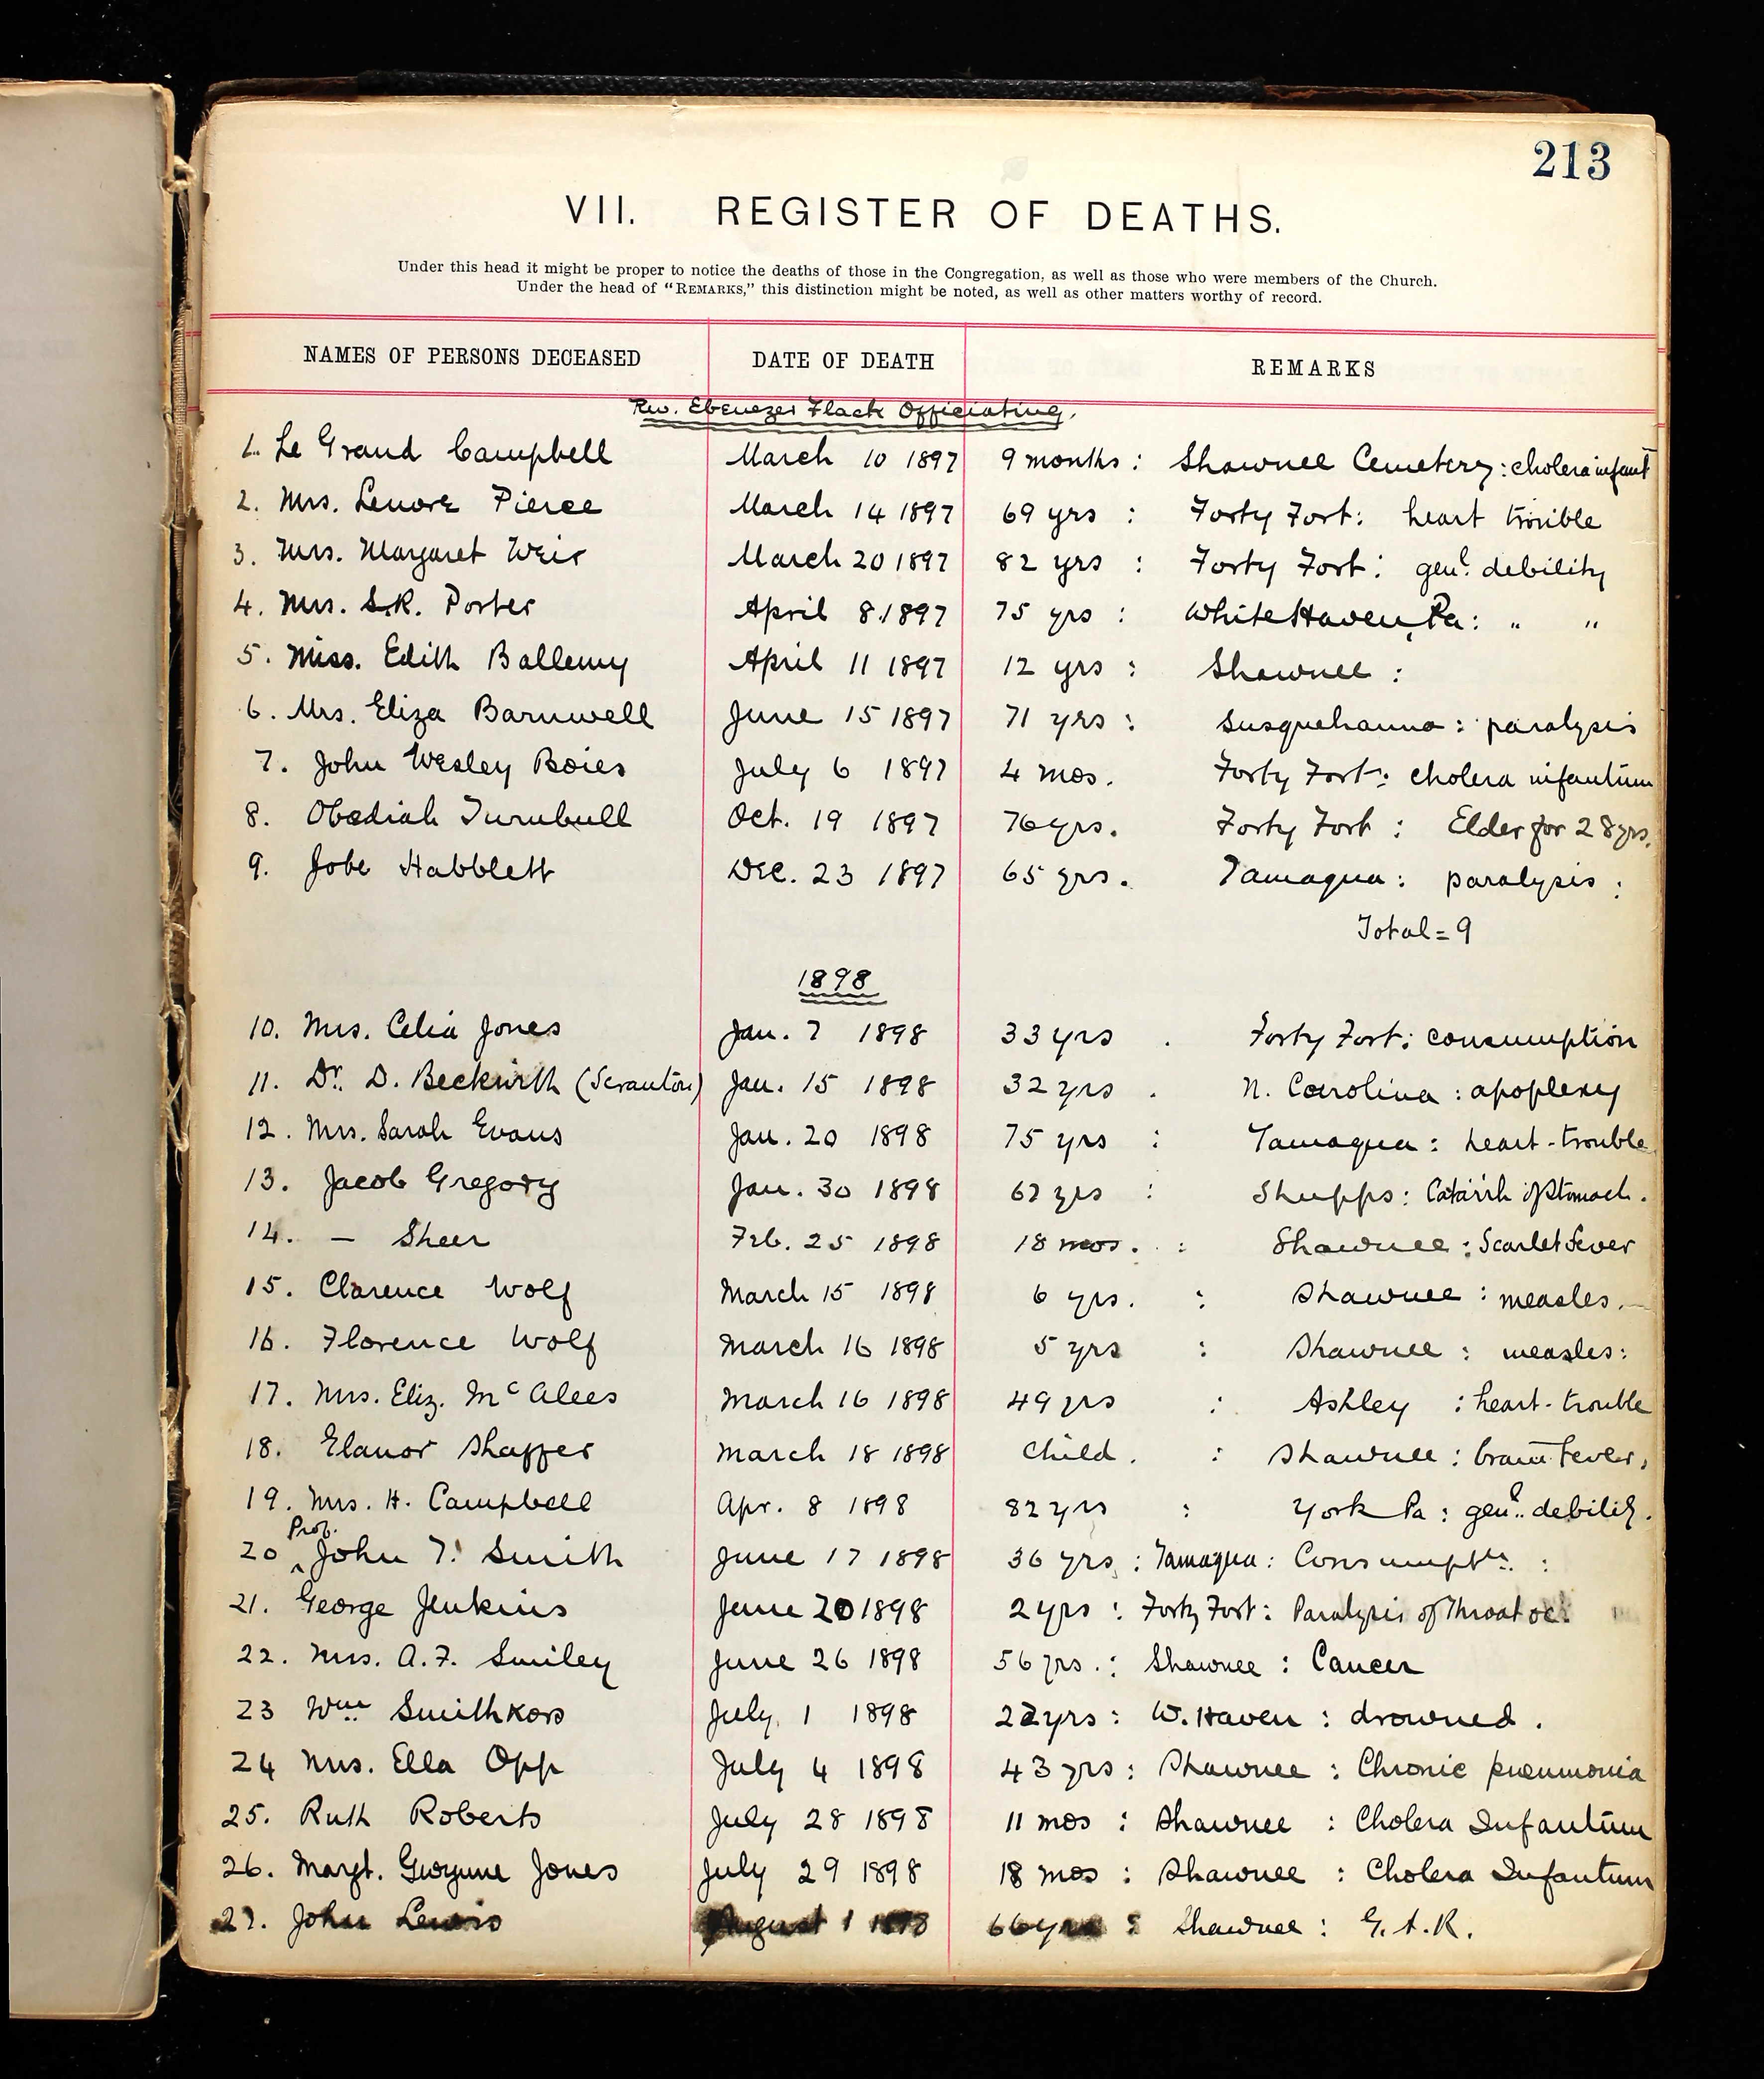 213
VII. REGISTER OF DEATHS.
Under this head it might be proper to notice the deaths of those in the Congregation, as well as those who were members of the Church.
Under the head of "REMARKS," this distinction might be noted, as well as other matters worthy of record.
NAMES OF PERSONS DECEASED DATE OF DEATH REMARKS
Rev. Ebenezer Flack Officiating.
1. Le Grand Campbell March 10 1897 9 months : Shawnee Cemetery : cholera infant
2. Mrs. Lenore Pierce March 14 1897 69 yrs : Forty Fort : heart trouble
3. Mrs. Margaret Weir March 20 1897 82 yrs : Forty Fort : genl. debility
4. Mrs. S.R. Porter April 8 1897 75 yrs : White Haven, Pa : " "
5. Miss. Edith Ballemy April 11 1897 12 yrs : Shawnee :
6. Mrs. Eliza Barnwell June 15 1897 71 yrs : Susquehanna : paralysis
7. John Wesley Boies July 6 1897 4 mos. Forty Fort : cholera infantum
8. Obediah Turnbull Oct. 19 1897 76 yrs. Forty Fort : Elder for 28 yrs.
9. Jobe Habblett Dec. 23 1897 65 yrs. Tamaqua : paralysis :
Total = 9
1898
10. Mrs. Celia Jones Jan. 7 1898 33 yrs . Forty Fort : consumption
11. Dr. D. Beckwith (Scranton) Jan. 15 1898 32 yrs . N. Carolina : apoplexy
12. Mrs. Sarah Evans Jan. 20 1898 75 yrs : Tamaqua : heart-trouble
13. Jacob Gregory Jan. 30 1898 62 yrs : Shupps : Catarrh of Stomach.
14. — Sheer Feb. 25 1898 18 mos. : Shawnee : Scarlet Fever
15. Clarence Wolf March 15 1898 6 yrs. : Shawnee : measles.
16. Florence Wolf March 16 1898 5 yrs : Shawnee : measles :
17. Mrs. Eliz. McAlees March 16 1898 49 yrs : Ashley : heart-trouble
18. Elanor Shaffer March 18 1898 Child. : Shawnee : brain Fever.
19. Mrs. H. Campbell Apr. 8 1898 82 yrs : York Pa : genl. debility.
20 Prof. John T. Smith June 17 1898 36 yrs : Tamaqua : Consumptn. :
21. George Jenkins June 20 1898 2 yrs : Forty Fort : Paralysis of Throat &c.
22. Mrs. A. F. Smiley June 26 1898 56 yrs. : Shawnee : Cancer
23 Wm. Smithkors July 1 1898 22 yrs : W. Haven : drowned.
24 Mrs. Ella Opp July 4 1898 43 yrs : Shawnee : Chronic pneumonia
25. Ruth Roberts July 28 1898 11 mos : Shawnee : Cholera Infantum
26. Margt. Gwynne Jones July 29 1898 18 mos : Shawnee : Cholera Infantum
27. John Lewis August 1 1898 66 yrs : Shawnee : G.A.R.